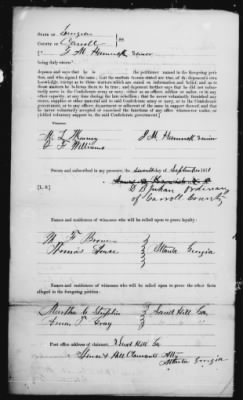 STATE OF Georgia
COUNTY OF Carroll
I, J. M. Hammick Senior
being duly sworn,
deposes and says that he is the petitioner named in the foregoing peti-
tion, and who signed the same; that the matters therein stated are true, of the deponent's own
knowledge, except as to those matters which are stated on information and belief, and as to
those matters he believes them to be true; and deponent further says that he did not volun-
tarily serve in the Confederate army or navy, either as an officer, soldier, or sailor, or in any
other capacity, at any time during the late rebellion; that he never voluntarily furnished any
stores, supplies, or other material aid to said Confederate army or navy, or to the Confederate
government, or to any officer, department, or adherent of the same in support thereof; and that
he never voluntarily accepted or exercised the functions of any office whatsoever under, or
yielded voluntary support to, the said Confederate government.
Witnesses:
J. M. Hammick Senior
Williams
Sworn and subscribed in my presence, the seventh day of September 187
[L. S.]
Ordinary
of Carroll County
Names and residences of witnesses who will be relied upon to prove loyalty:
Brown
Thomas
Atlanta Georgia
Names and residences of witnesses who will be relied upon to prove the other facts
alleged in the foregoing petition:
Martha
Sand Hill Ga
Gray
" "
Post office address of claimant: Sand Hill Ga
& Hill Claimants Atty
Atlanta Georgia